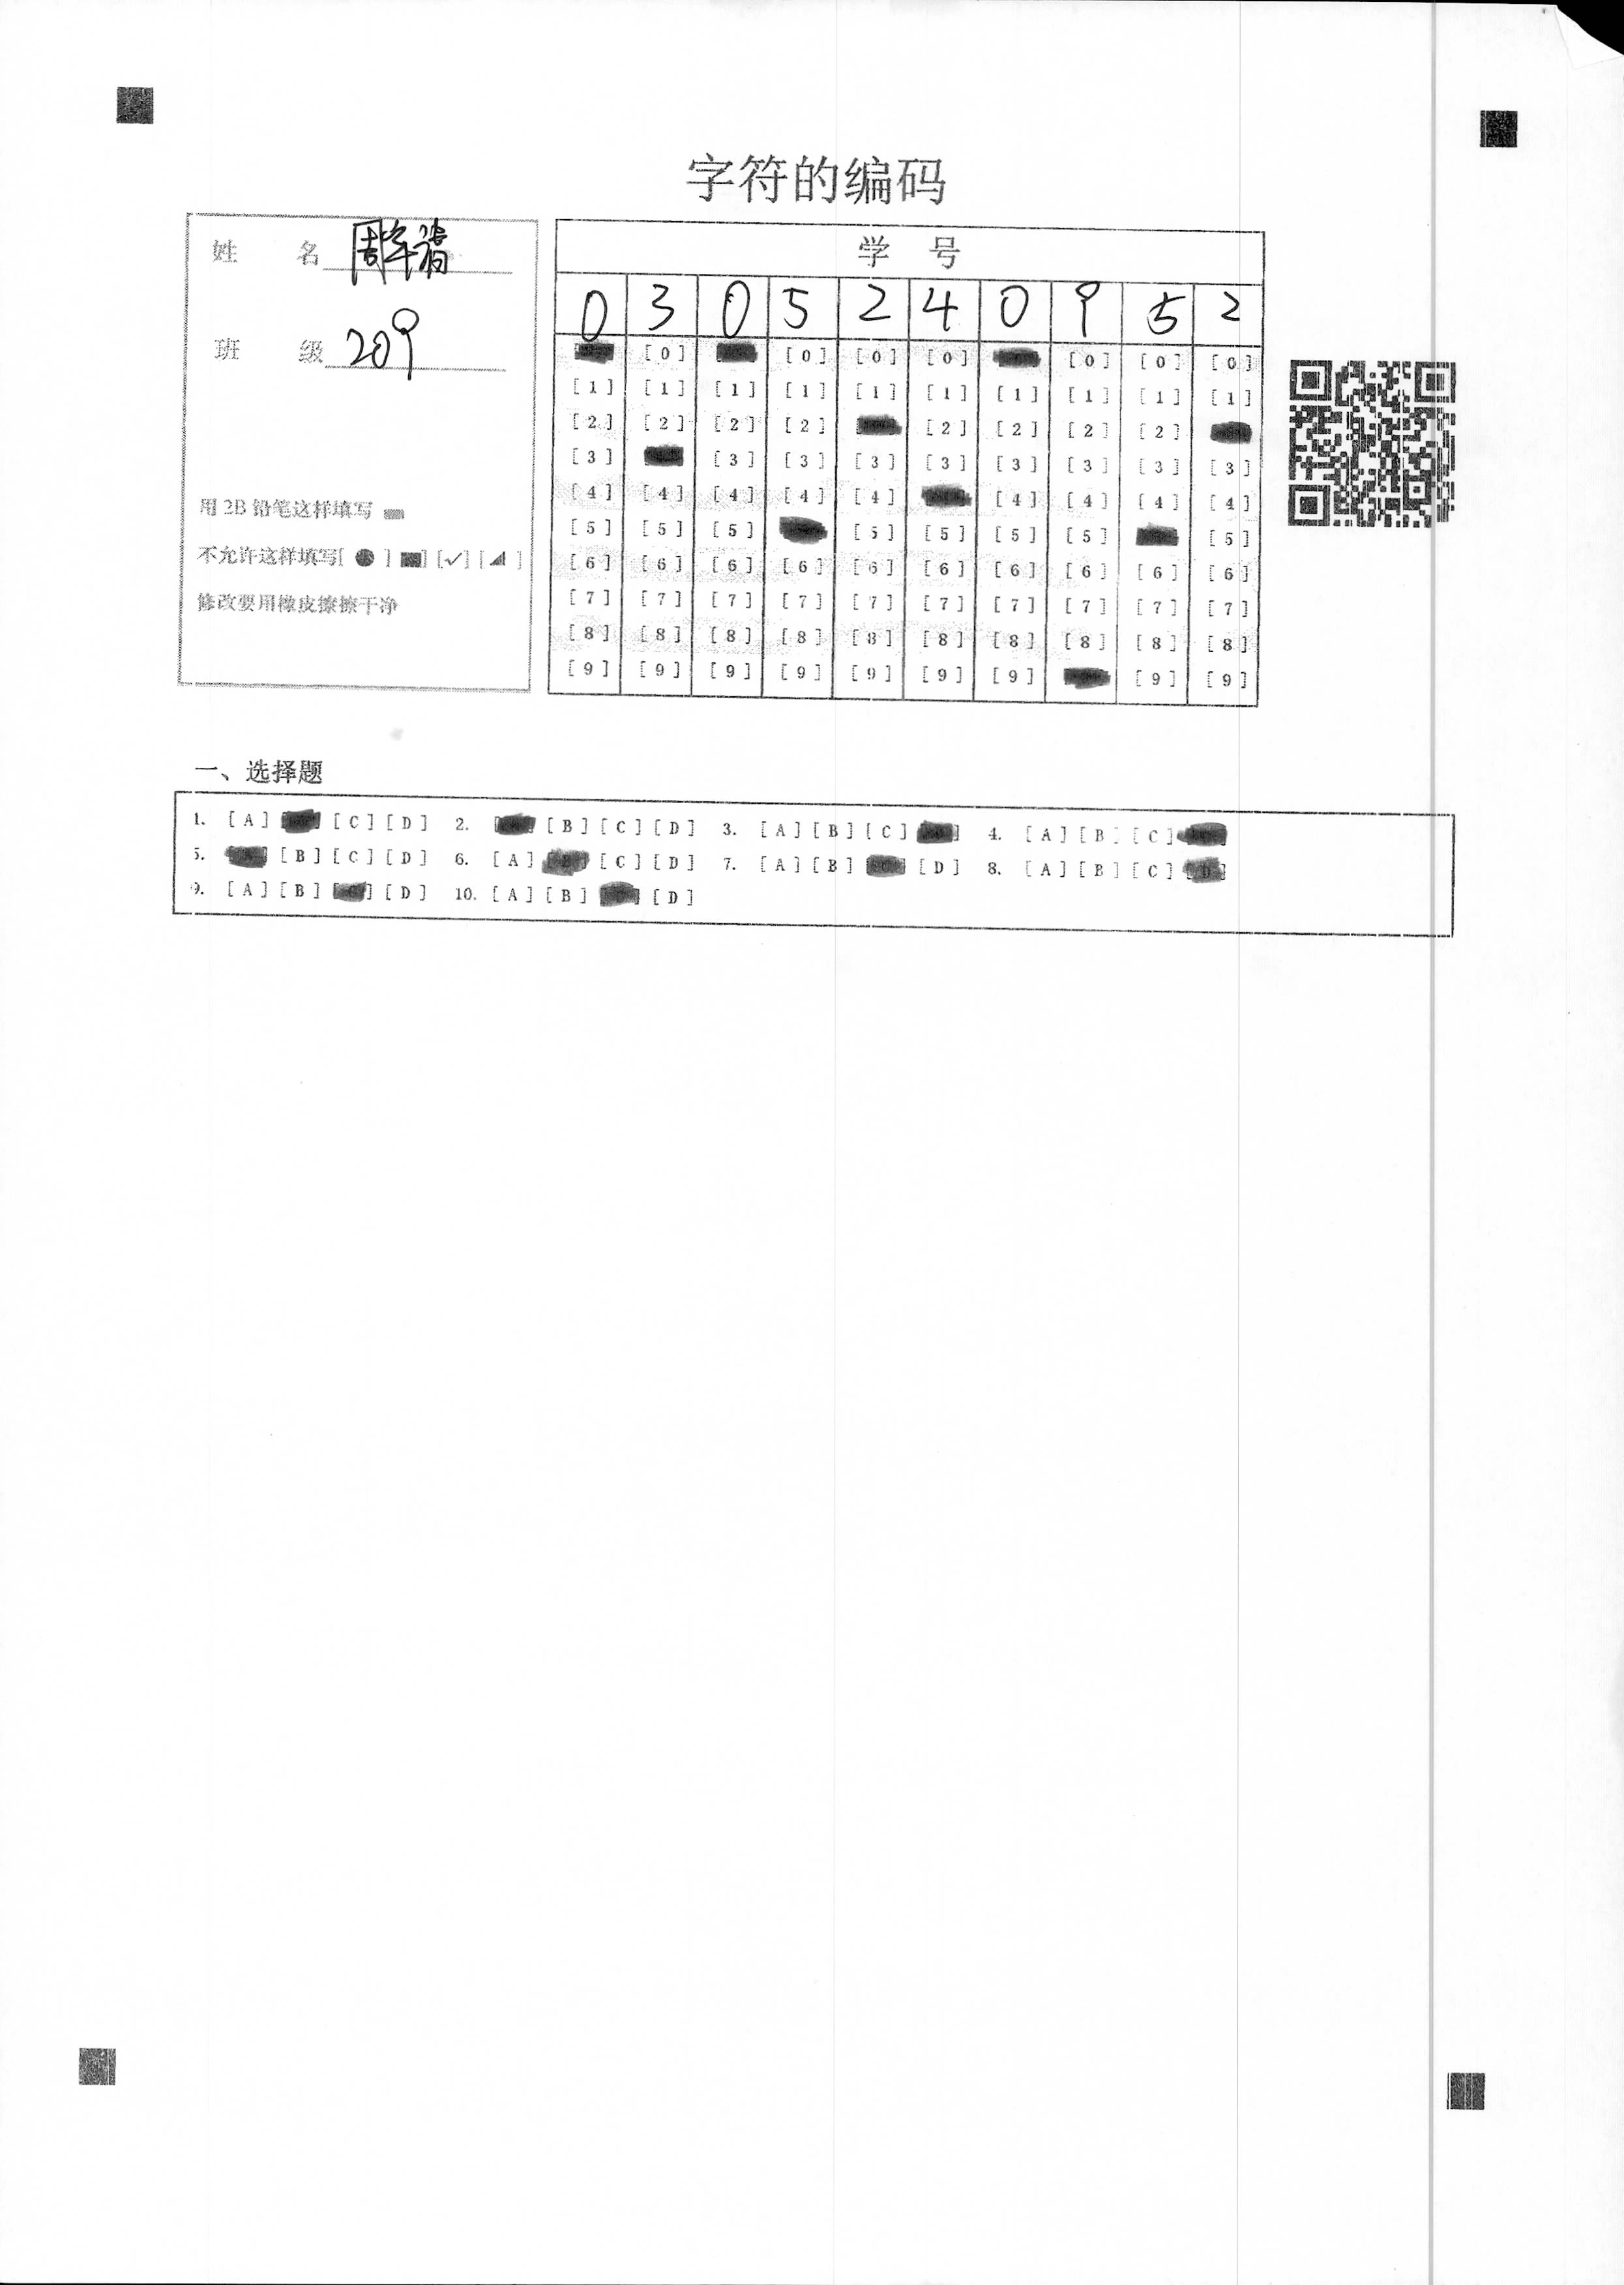 字符的编码
姓 名 周
班 级 209
用2B铅笔这样填写
不允许这样填写[ ● ] [■] [✓] [◢ ]
修改要用橡皮擦擦干净
学 号
0 3 0 5 2 4 0 9 5 2
[0] [0] [0] [0] [0] [0] [0]
[1] [1] [1] [1] [1] [1] [1] [1] [1] [1]
[2] [2] [2] [2] [2] [2] [2] [2]
[3] [3] [3] [3] [3] [3] [3] [3] [3]
[4] [4] [4] [4] [4] [4] [4] [4] [4]
[5] [5] [5] [5] [5] [5] [5] [5]
[6] [6] [6] [6] [6] [6] [6] [6] [6] [6]
[7] [7] [7] [7] [7] [7] [7] [7] [7] [7]
[8] [8] [8] [8] [8] [8] [8] [8] [8] [8]
[9] [9] [9] [9] [9] [9] [9] [9] [9]
一、选择题
1. [A] [C] [D] 2. [B] [C] [D] 3. [A] [B] [C] 4. [A] [B] [C]
5. [B] [C] [D] 6. [A] [B] [C] [D] 7. [A] [B] [D] 8. [A] [B] [C] [D]
9. [A] [B] [C] [D] 10. [A] [B] [D]